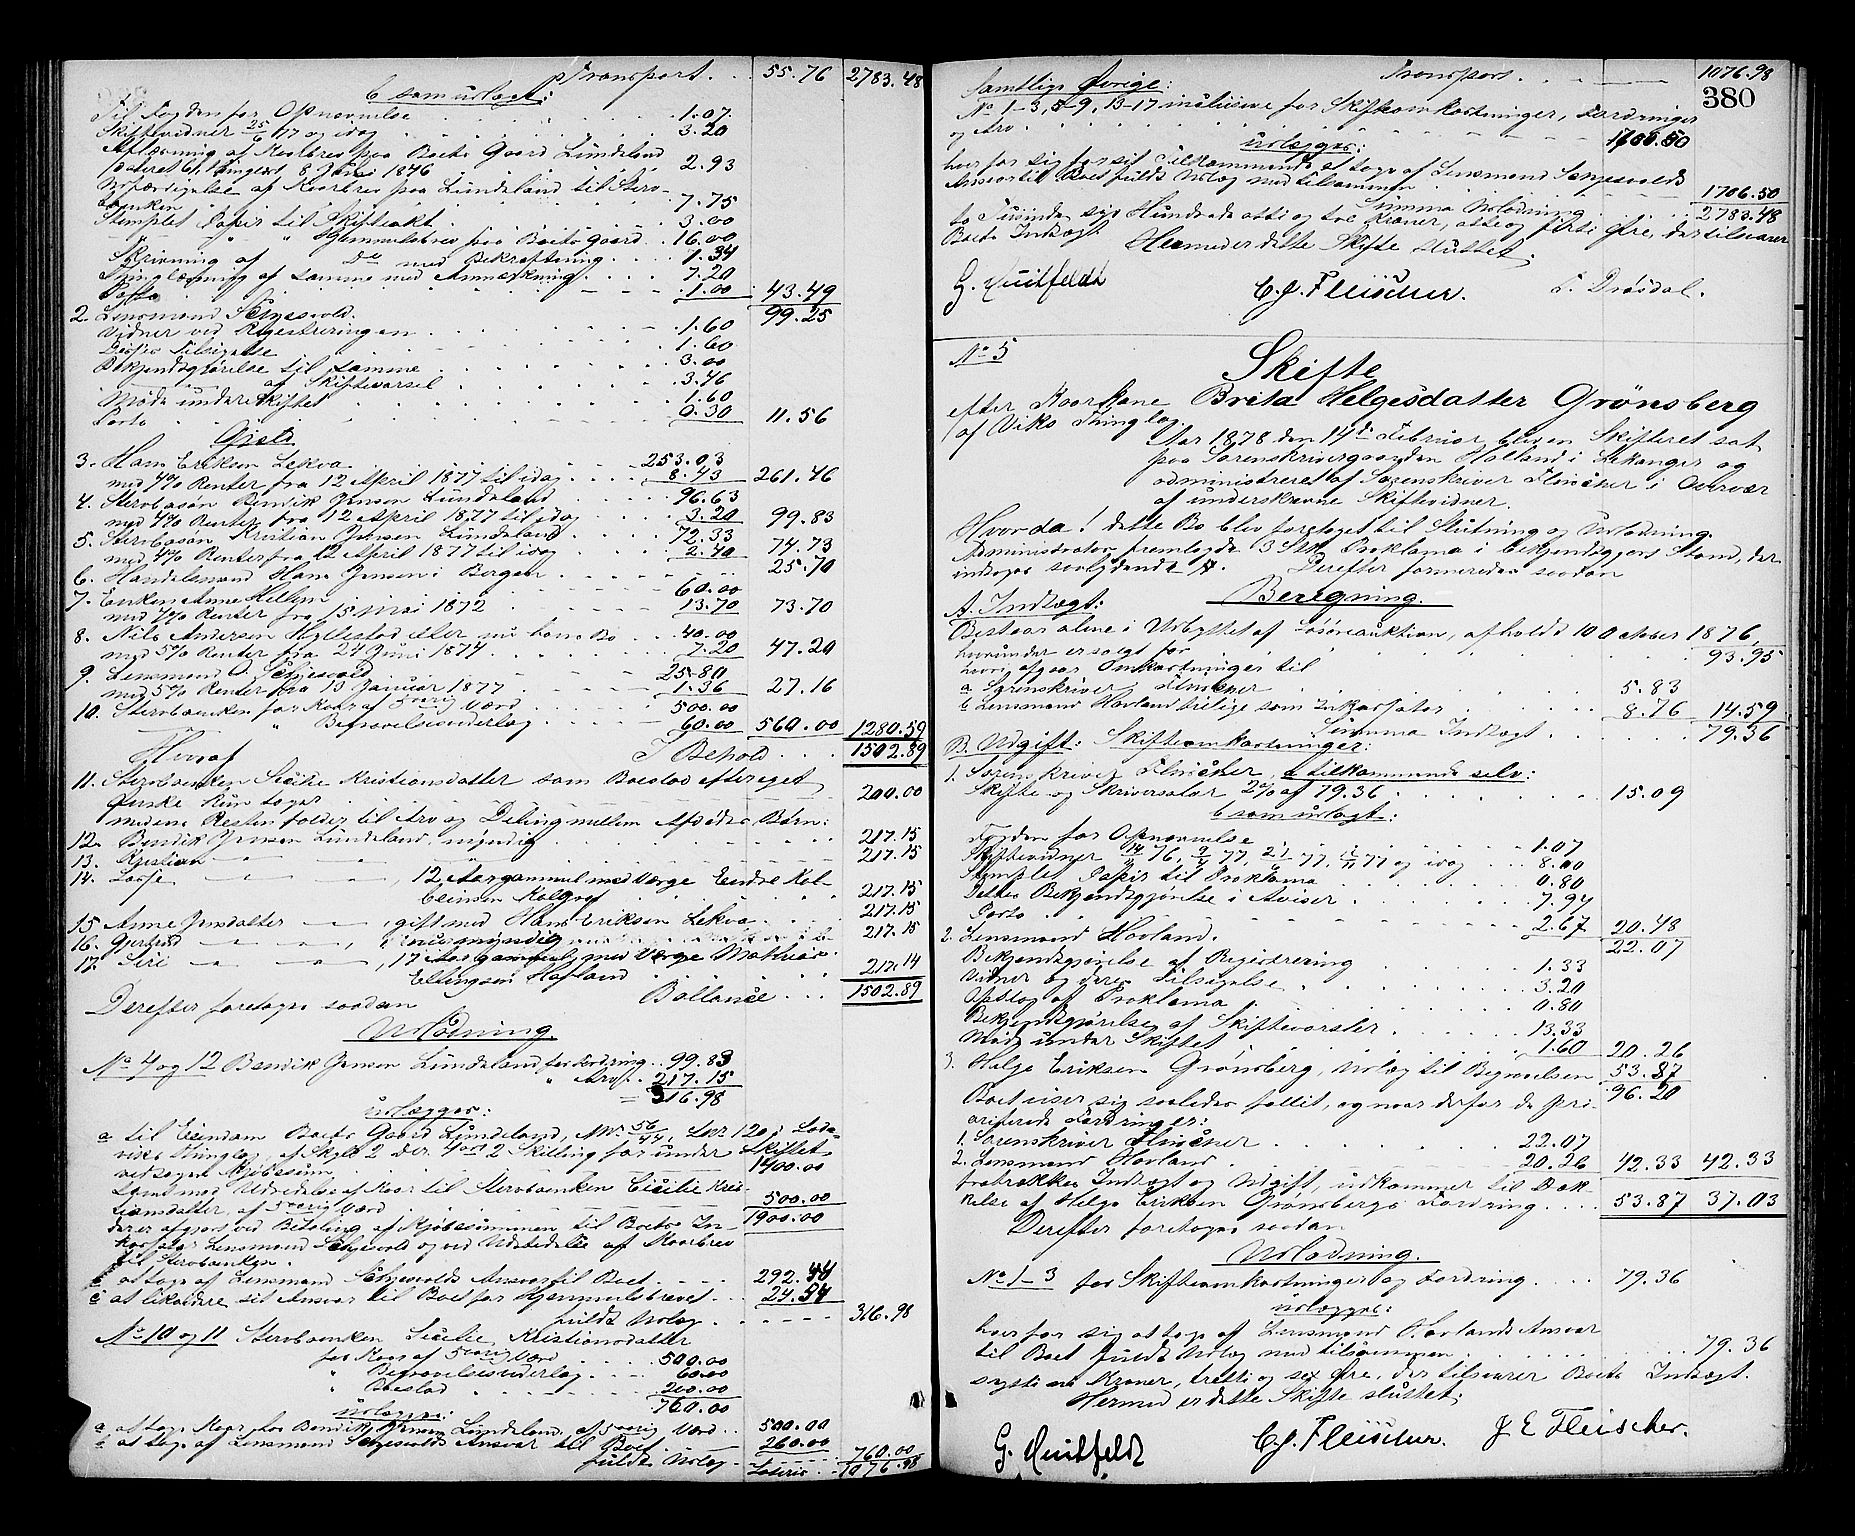 Transport. . . 55.76 2783.48
b som udlagt:
Til Fogden for Opnævnelse . . . 1.07.
Skiftevidner 25/6 77 og idag . . . 3.20
Aflæsning af Kaarbrev paa Boets Gaard Lundeland
8 Juni 1846 . . . 2.93
Udfærdigelse af Kaarbrev paa Lundeland til Sterv-
boenken . . . 7.75
Stemplet Papir til Skifteakt . . . 3.00
" " Hjemmelsbrev paa Boets Gaard . . 16.00
Skrivning af Do med Bekræftning . . . 1.34
Thinglæsning af samme med Anmærkning . . . 7.20
Porto . . . 1.00 43.49
2. Lensmand . . . 99.25
Vidner ved Registreringen . . . 1.60
Disses Tilsigelse . . . 1.60
Bekjendtgjørelse til samme . . . 3.00
af Skiftevarsel . . . 3.46
Møde under Skiftet . . . 1.60
Porto . . . 0.30 11.56
Gjeld
3. Hans Eriksen Lekva . . . 253.03
med 4% Renter fra 12 April 1877 til idag . . . 8.43 261.46
4. Stervbosøn Bendik Jensen Lundeland . . . 96.63
med 4% Renter fra 12 April 1877 til idag . . . 3.20 99.83
5. Stervbosøn Kristian Jensen Lundeland . . . 72.33
med 4% Renter fra 12 April 1877 til idag . . . 2.40 74.73
6. Handelsmand Hans Jensen i Bergen . . . 25.70
7. Enken Anne . . . 60.00
med 4% Renter fra 15 Mai 1872 . . . 13.70 73.70
8. Nils Andersen Hyllestad eller nu hans Bo . . . 40.00
med 5% Renter fra 24 Juni 1874 . . . 7.20 47.20
9. Lensmand . . . 25.80
med 5% Renter fra 13 Januar 1877 . . . 1.36 27.16
10. Stervboenken for Kaar af 5 aarig Værd . . . 500.00
" Begravelsesudlæg . . . 60.00 560.00 1280.59
I Behold . . . 1502.89
Hvoraf
11. Stervboenken Kristiansdatter som Boeslod efter eget
Ønske kun tager . . . 200.00
medens Resten falder til Arv og Deling mellem Afdødes Børn:
12. Bendik Jensen Lundeland, myndig . . . 217.15
13. Kristian " " . . . 217.15
14. Lasse " " , 12 Aar gammel med Værge
217.15
15 Anne Jensdatter " , gift med Hans Eriksen Lekva . . . 217.15
16. " " , . . . 217.15
17. Siri " " , 17 Aar gammel, med Værge
Ellingsen Hafland . . . 217.14
Derefter foretoges saadan Ballance . . . 1502.89
Udlodning.
No 4 og 12 Bendik Jensen Lundeland for Fordring . . 99.83
" Arv . . 217.15
= 316.98
udlægges:
a til Eiendom Boets Gaard Lundeland, Mno 56/44, Lno 120 i
Thinglag, af Skyld 2 Dlr. 4 ort 2 Skilling for under Skiftet
vedtagen Kjøbesum . . . 1400.00
samt mod Udredelse af Kaar til Stervboenken Cicilie Kris-
tiansdatter, af 5 aarig Værd . . . 500.00
der er afgjort ved Betaling af Kjøbesummen til Boets In- 1900.00
kassator Lensmand og ved Udstedelse af Kaarbrev
til Stervboenken.
b at tage af Lensmand Ansvar til Boet . . . 292.44
c at likvidere sit Ansvar til Boet for Hjemmelsbrevet . . . 24.54
fuldt Udlæg . . . 316.98
No 10 og 11 Stervboenken Cicilie Kristiansdatter
for Kaar af 5 aarig Værd . . . 500.00
" Begravelsesudlæg . . . 60.00
" Boeslod . . . 200.00
760.00
udlægges:
a at tage Kaar hos Bendik Jensen Lundeland, af 5 aarig Værd . . 500.00
b at tage af Lensmand Ansvar til Boet . . . 260.00
fuldt Udlæg . . . 760.00
Lateris . . 1076.98
Samtlige Øvrige: Transport . . . 1076.98
380
No 1-3, 5-9, 13-17 inclusive for Skifteomkostninger, Fordringer
og Arv . . . 1706.50
udlægges:
hver for sig for sit Tilkommende at tage af Lensmand
Ansvar til Boet fuldt Udlæg med tilsammen . . . 1706.50
Summa Udlodning . . . 2783.48
to Tusinde syv Hundrede otti og tre Kroner, otte og firti Øre, der tilsvarer
Boets Indtægt. Hermed er dette Skifte sluttet.
G. Huitfeldt C.J. Fleischer. L. Drøsdal.
No 5
Skifte
efter Kaarkone Brita Helgesdatter Grønsberg
af Viks Thinglag.
Aar 1878 den 14de Februar blev en Skifteret sat
paa Sorenskrivergaarden Holland i Lekanger og
administreret af Sorenskriver Fleischer i Overvær
af underskrevne Skiftevidner.
Hvorda! dette Bo blev foretaget til Slutning og Udlodning.
Administrator fremlagde 3 Stk. Proklama i bekjendtgjort Stand, der
indtages saalydende Derefter formeredes saadan
Beregning.
A. Indtægt:
Bestaar alene i Udbyttet af Løsøreauktion, afholdt 10 October 1876,
hvorunder er solgt for . . . 93.95
hvori afgaar Omkostninger til
a Sorenskriver Fleischer . . . 5.83
b Lensmand Hovland tillige som Inkassator . . . 8.76 14.59
Summa Indtægt . . . 79.36
B. Udgift: Skifteomkostninger:
1. Sorenskriver Fleischer, a tilkommende selv:
Skifte og Skriversalær 2% af 79.36 . . . 15.09
b som udlagt:
Fogden for Opnævnelse . . . 1.07
Skiftevidner 14/11 76, 9/4 77, 21/6 77, 12/11 77 og idag . . . 8.00
Stemplet Papir til Proklama . . . 0.80
Dettes Bekjendtgjørelse i Aviser . . . 7.94
Porto . . . 2.67 20.48
2. Lensmand Hovland. 22.07
Bekjendtgjørelse af Registrering . . . 1.33
Vidner og deres Tilsigelse . . . 3.20
Opslag af Proklama . . . 0.80
Bekjendtgjørelse af Skiftevarsler . . . 13.33
Møde under Skiftet . . . 1.60 20.26
3. Helge Eriksen Grønsberg, Udlæg til Begravelsen 53.87
Boet viser sig saaledes fallit, og naar derfor de pri- 96.20
oriterede Fordringer:
1. Sorenskriver Fleischer . . . 22.07
2. Lensmand Hovland . . . 20.26 42.33 42.33
fratrækkes Indtægt og Udgift, udkommer til Dæk-
kelse af Helge Eriksen Grønsbergs Fordring . . . 53.87 37.03
Derefter foretoges saadan
Udlodning.
No 1-3 for Skifteomkostninger og Fordring . . . 79.36
udlægges:
hver for sig at tage af Lensmand Hovlands Ansvar
til Boet fuldt Udlæg med tilsammen . . . 79.36
sytti ni Kroner, tretti og sex Øre, der tilsvarer Boets Indtægt.
Hermed er dette Skifte sluttet.
G. Huitfeldt C.J. Fleischer. J E Fleischer.